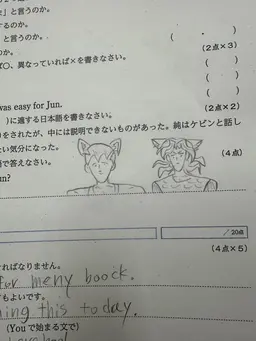 と」と言うのか。
するのか。
と言うのか。
( . )
(2点×3)
のか。
ば○、異なっていれば×を書きなさい。
( )
( )
( )
( )
was easy for Jun.
(2点×2)
)に適する日本語を書きなさい。
をされたが、中には説明できないものがあった。純はケビンと話し
たい気分になった。
(4点)
語で答えなさい。
un?
/20点
(4点×5)
ければなりません。
for meny boock.
もよいです。
ing this today.
(You で始まる文で)